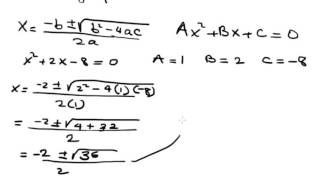 x = (-b ± √(b² - 4ac)) / 2a    Ax² + Bx + C = 0
x² + 2x - 8 = 0    A = 1    B = 2    C = -8
x = (-2 ± √(2² - 4(1)(-8))) / 2(1)
= (-2 ± √(4 + 32)) / 2
= (-2 ± √36) / 2